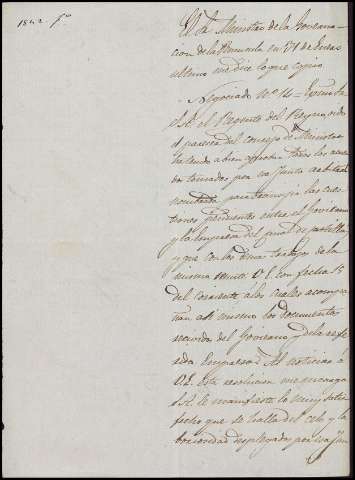 1842 fo
El Sr. Ministro de la Gobernacion
de la Peninsula en 31 de Enero
ultimo me dice lo que copio
Negociado Nº 14 = Excmo Sr
S.A. el Regente del Reyno, oido
el parecer del consejo de Ministros
ha tenido a bien aprobar todos los acuer
dos tomados por esa Junta arbitral
nombrada para transijir las cues
tiones pendientes entre el Gobierno
y la Empresa del canal de Castilla
y que con los demas trabajos de la
misma remitió V.E. con fecha 15
del corriente a los cuales acompa
ñan asi mismo los documentos
recividos del Gobierno y de la refe
rida Empresa. Al noticiar a
V.E. esta resolucion me encarga
S.A. le manifieste lo muy satis
fecho que se halla del celo y la
laboriosidad desplegados por esa Jun